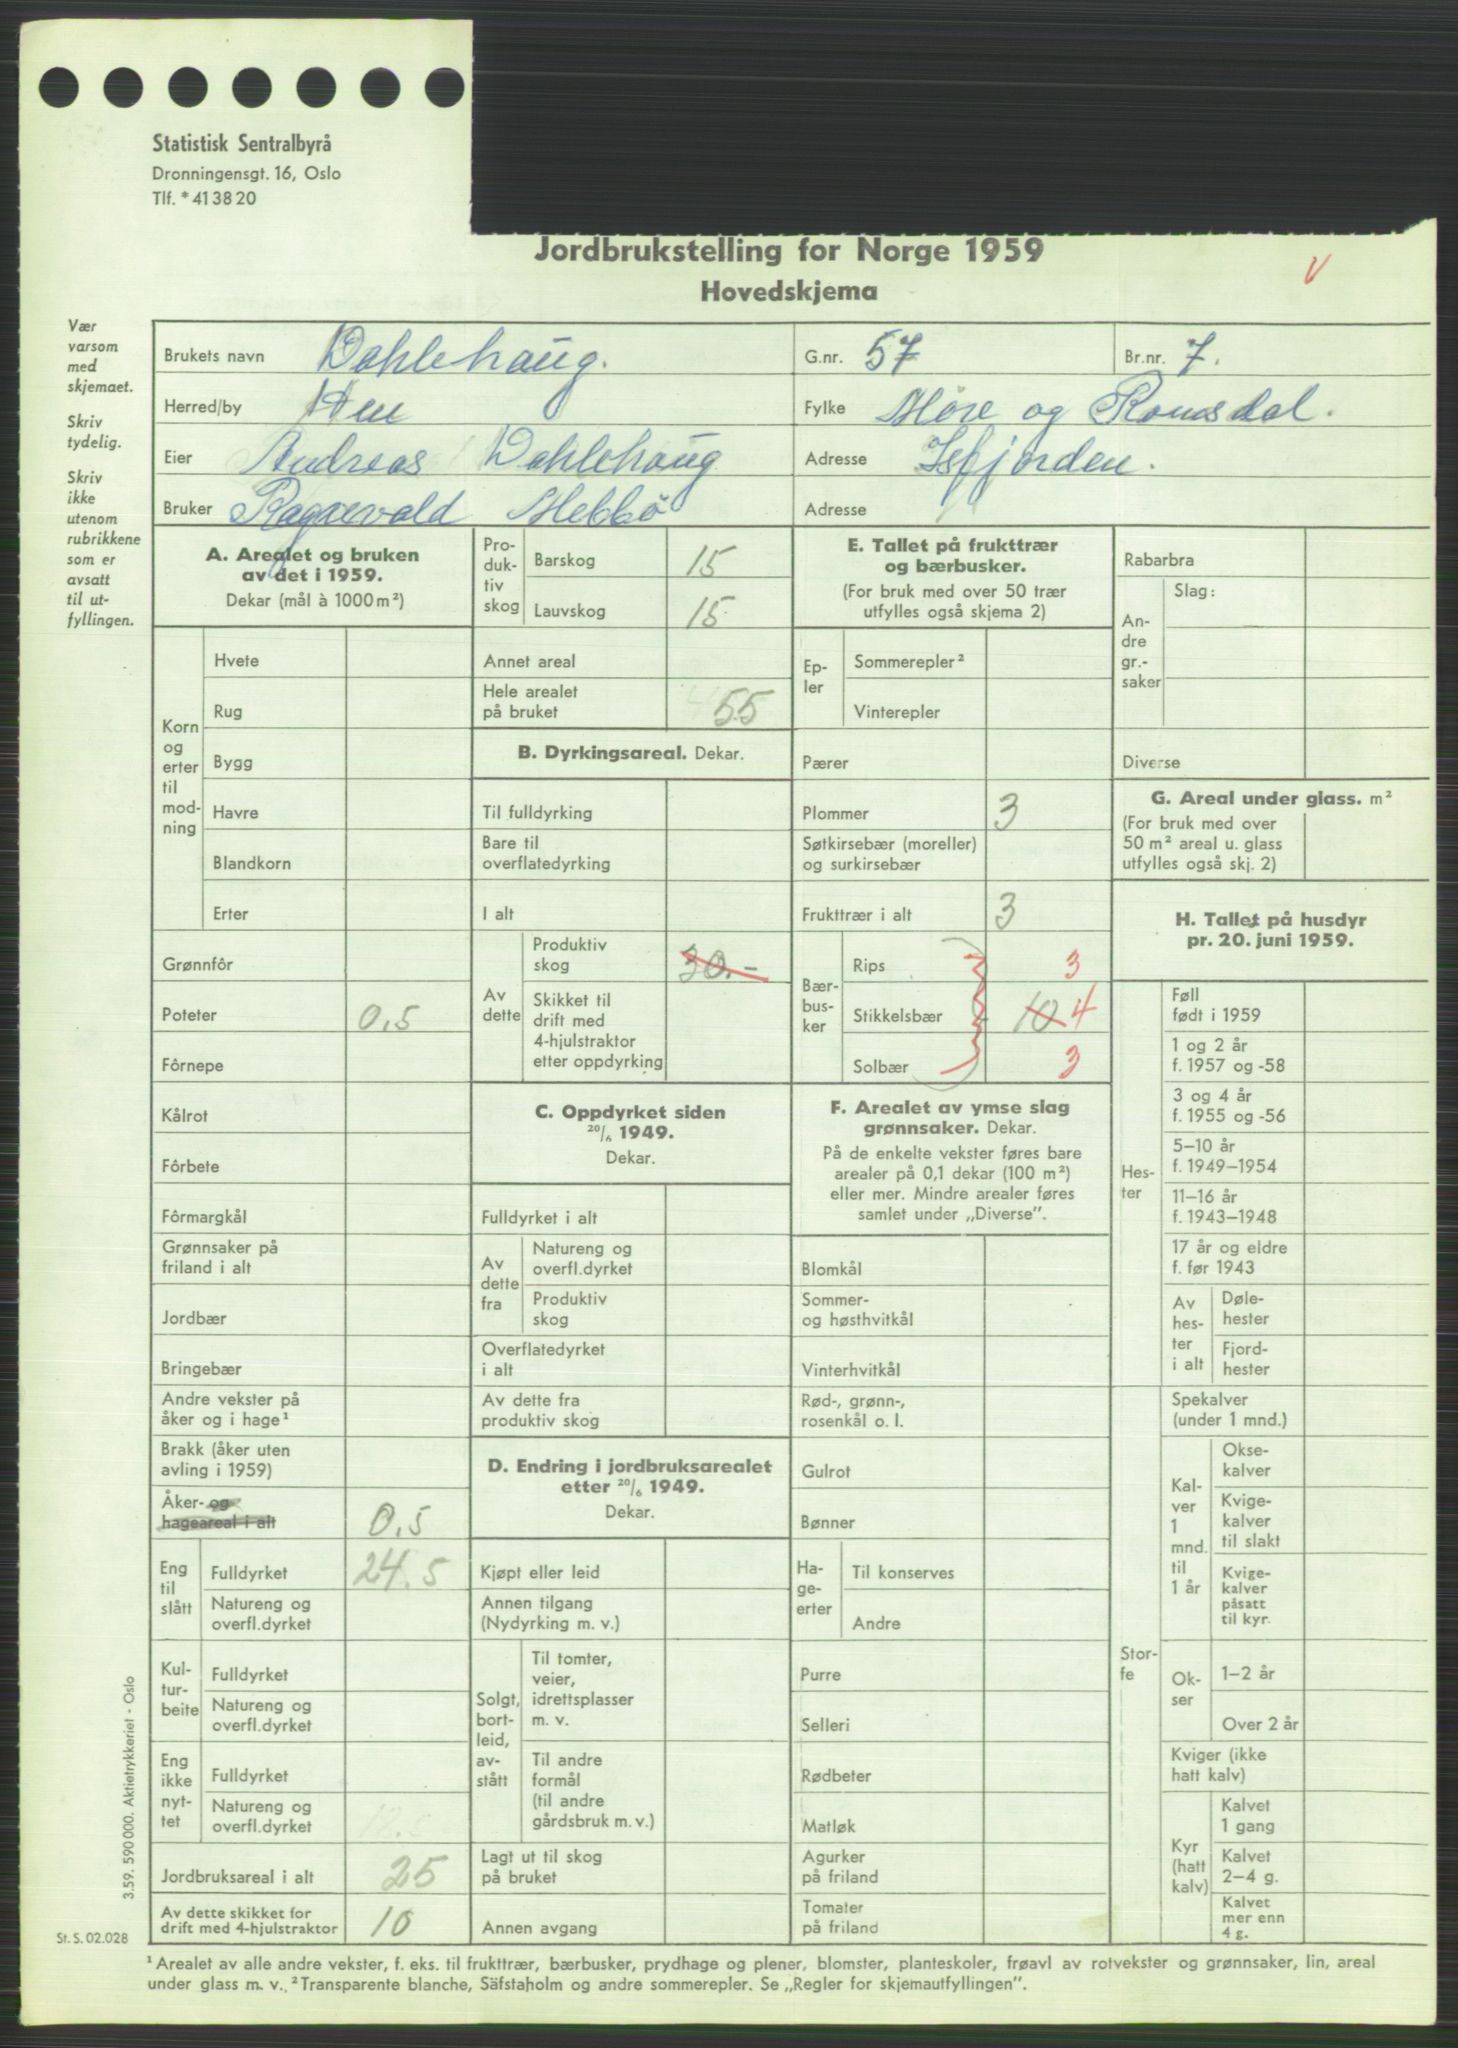 Statistisk Sentralbyrå
Dronningensgt. 16, Oslo
Tlf. * 41 38 20
Jordbrukstelling for Norge 1959
Hovedskjema
V
Vær
varsom
med
skjemaet.
Skriv
tydelig.
Skriv
ikke
utenom
rubrikkene
som er
avsatt
til ut-
fyllingen.
Brukets navn Dahlehaug. G.nr. 57 Br.nr. 7.
Herred/by Hen Fylke Møre og Romsdal.
Eier Andreas Dahlehaug Adresse Isfjorden.
Bruker Ragnvald Hebbö Adresse
A. Arealet og bruken
av det i 1959.
Dekar (mål à 1000 m²)
Korn
og
erter
til
mod-
ning
Hvete
Rug
Bygg
Havre
Blandkorn
Erter
Grønnfôr
Poteter 0,5
Fôrnepe
Kålrot
Fôrbete
Fôrmargkål
Grønnsaker på
friland i alt
Jordbær
Bringebær
Andre vekster på
åker og i hage¹
Brakk (åker uten
avling i 1959)
Åker- og
hageareal i alt 0,5
Eng
til
slått
Fulldyrket 24.5
Natureng og
overfl.dyrket
Kul-
tur-
beite
Fulldyrket
Natureng og
overfl.dyrket
Eng
ikke
nyt-
tet
Fulldyrket
Natureng og
overfl.dyrket
Jordbruksareal i alt 25
Av dette skikket for
drift med 4-hjulstraktor 10
Pro-
duk-
tiv
skog
Barskog 15
Lauvskog 15
Annet areal
Hele arealet
på bruket 55
B. Dyrkingsareal. Dekar.
Til fulldyrking
Bare til
overflatedyrking
I alt
Av
dette
Produktiv
skog 30.-
Skikket til
drift med
4-hjulstraktor
etter oppdyrking
C. Oppdyrket siden
20/6 1949.
Dekar.
Fulldyrket i alt
Av
dette
fra
Natureng og
overfl.dyrket
Produktiv
skog
Overflatedyrket
i alt
Av dette fra
produktiv skog
D. Endring i jordbruksarealet
etter 20/6 1949.
Dekar.
Kjøpt eller leid
Annen tilgang
(Nydyrking m. v.)
Solgt,
bort-
leid,
av-
stått
Til tomter,
veier,
idrettsplasser
m. v.
Til andre
formål
(til andre
gårdsbruk m. v.)
Lagt ut til skog
på bruket
Annen avgang
E. Tallet på frukttrær
og bærbusker.
(For bruk med over 50 trær
utfylles også skjema 2)
Ep-
ler
Sommerepler²
Vinterepler
Pærer
Plommer 3
Søtkirsebær (moreller)
og surkirsebær
Frukttrær i alt 3
Bær-
bus-
ker
Rips 3
Stikkelsbær 10 4
Solbær 3
F. Arealet av ymse slag
grønnsaker. Dekar.
På de enkelte vekster føres bare
arealer på 0,1 dekar (100 m²)
eller mer. Mindre arealer føres
samlet under „Diverse".
Blomkål
Sommer-
og høsthvitkål
Vinterhvitkål
Rød-, grønn-,
rosenkål o. l.
Gulrot
Bønner
Ha-
ge-
erter
Til konserves
Andre
Purre
Selleri
Rødbeter
Matløk
Agurker
på friland
Tomater
på friland
Rabarbra
An-
dre
gr.-
saker
Slag:
Diverse
G. Areal under glass. m²
(For bruk med over
50 m² areal u. glass
utfylles også skj. 2)
H. Tallet på husdyr
pr. 20. juni 1959.
Hes-
ter
Føll
født i 1959
1 og 2 år
f. 1957 og -58
3 og 4 år
f. 1955 og -56
5–10 år
f. 1949–1954
11–16 år
f. 1943–1948
17 år og eldre
f. før 1943
Av
hes-
ter
i alt
Døle-
hester
Fjord-
hester
Stor-
fe
Spekalver
(under 1 mnd.)
Kal-
ver
1
mnd.
til
1 år
Okse-
kalver
Kvige-
kalver
til slakt
Kvige-
kalver
påsatt
til kyr.
Ok-
ser
1–2 år
Over 2 år
Kviger (ikke
hatt kalv)
Kyr
(hatt
kalv)
Kalvet
1 gang
Kalvet
2–4 g.
Kalvet
mer enn
4 g.
3.59. 590 000. Aktietrykkeriet - Oslo
St. S. 02.028
¹ Arealet av alle andre vekster, f. eks. til frukttrær, bærbusker, prydhage og plener, blomster, planteskoler, frøavl av rotvekster og grønnsaker, lin, areal
under glass m. v. ² Transparente blanche, Säfstaholm og andre sommerepler. Se „Regler for skjemautfyllingen".